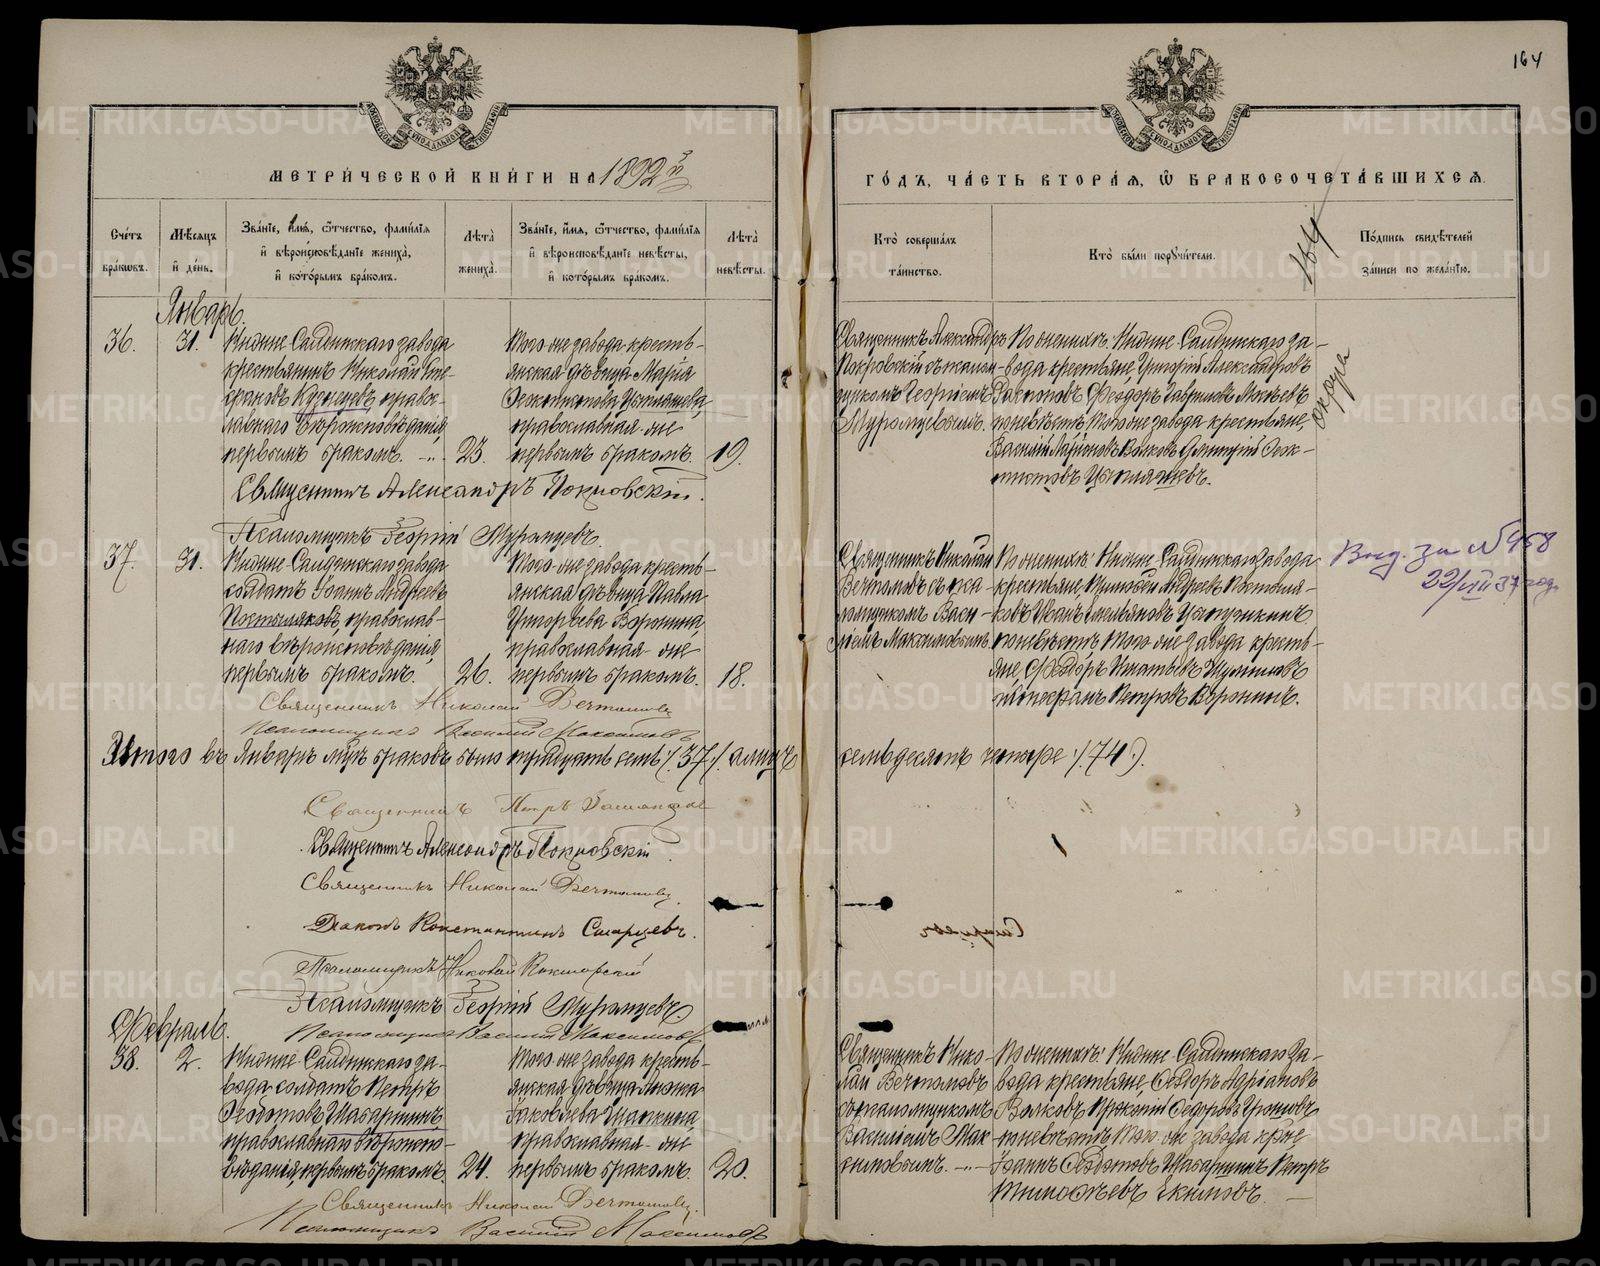 164
МЕТРИЧЕСКОЙ КНИГИ НА 1892й
ГОДЪ, ЧАСТЬ ВТОРАЯ, Ѡ БРАКОСОЧЕТАВШИХСЯ.
Счетъ браковъ.
Мѣсяцъ и день.
Званіе, имя, ѿчество, фамилія и вѣроисповѣданіе жениха, и которымъ бракомъ.
Лѣта жениха.
Званіе, имя, ѿчество, фамилія и вѣроисповѣданіе невѣсты, и которымъ бракомъ.
Лѣта невѣсты.
Кто совершалъ таинство.
Кто были порꙋчители.
164
Подпись свидѣтелей записи по желанію.
Январь.
36.
31.
Нижне-Салдинскаго завода
крестьянинъ Николай Сте-
фановъ Кузнецовъ, право-
славнаго вѣроисповѣданія,
первымъ бракомъ.
23.
Того же завода кресть-
янская дѣвица Марія
Феоктистова Цыпляшева,
православная же
первымъ бракомъ.
19.
Священникъ Александръ
Покровскій съ псалом-
щикомъ Георгіемъ
Муромцевымъ.
По женихѣ: Нижне-Салдинскаго за-
вода крестьяне, Григорій Александровъ
Ѳедоръ Гавриловъ
по невѣстѣ: того же завода крестьяне,
Василій Волковъ, Димитрій Феок-
тистовъ Цыпляшевъ.
Священникъ Александръ Покровскій.
Псаломщикъ Георгій Муромцевъ.
37.
31.
Нижне-Салдинскаго завода
солдатъ Іоаннъ Андреевъ
Постыляковъ, православ-
наго вѣроисповѣданія,
первымъ бракомъ.
26.
Того же завода кресть-
янская дѣвица Павла
Григорьева Воронина,
православная же
первымъ бракомъ.
18.
Священникъ Николай
съ пса-
ломщикомъ Васи-
ліемъ Максимовымъ.
По женихѣ: Нижне-Салдинскаго завода
крестьяне, Андреевъ Постыля-
ковъ, Иванъ Емельяновъ
по невѣстѣ: того же завода кресть-
яне, Ѳедоръ Игнатьевъ
Петровъ Воронинъ.
Выд. за №458
22/VIII 37 год.
Священникъ Николай
Псаломщикъ Василій Максимовъ
Итого въ Январѣ м‑цѣ браковъ было тридцать семь /.37./, а лицъ
семьдесятъ четыре /.74./.
Священникъ Петръ
Священникъ Александръ Покровскій.
Священникъ Николай
Діаконъ Константинъ Старцевъ.
Псаломщикъ Николай
Псаломщикъ Георгій Муромцевъ.
Псаломщикъ Василій Максимовъ
Февраль.
38.
2.
Нижне-Салдинскаго за-
вода, солдатъ Петръ
Ѳедотовъ Шагаринъ,
православнаго вѣроиспо-
вѣданія, первымъ бракомъ.
24.
Того же завода кресть-
янская дѣвица
Іаковлева
православная же
первымъ бракомъ.
20.
Священникъ Нико-
лай
съ псаломщикомъ
Василіемъ Мак-
симовымъ.
По женихѣ: Нижне-Салдинскаго за-
вода крестьяне, Ѳедоръ Адріановъ
Волковъ, Прокопій Ѳедоровъ
по невѣстѣ: того же завода кре-
Іоаннъ Ѳедотовъ Шагаринъ, Петръ
Тимоѳеевъ Екимовъ.
Священникъ Николай
Псаломщикъ Василій Максимовъ
METRIKI.GASO-URAL.RU